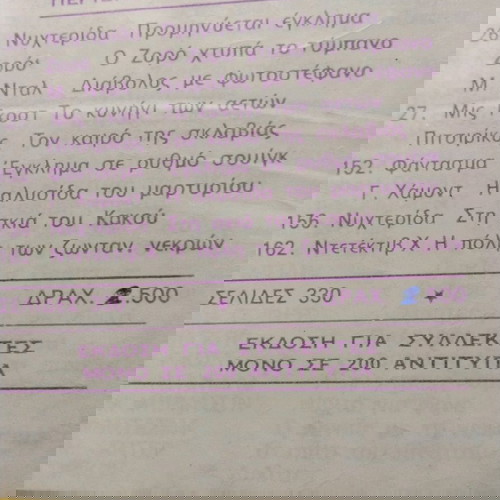 Νυχτερίδα Προμηνύεται έγκλημα
Ζορό Ο Ζορό χτυπά το τύμπανο
Νταλ Διάβολος με φωτοστέφανο
Το κυνήγι των αετών
27. Μις
Τον καιρό της σκλαβιάς
Πιτσιρίκος
Έγκλημα σε ρυθμό σουίγκ
152. Φάντασμα
αλυσίδα του μαρτυρίου
Γ. Χάμοντ Η
σκιά του Κακού
155. Νυχτερίδα Στη
των ζωντανών νεκρών
162. Ντετέκτιβ Χ Η πόλη
ΔΡΑΧ. 2.500 ΣΕΛΙΔΕΣ 330
ΕΚΔΟΣΗ ΓΙΑ ΣΥΛΛΕΚΤΕΣ
ΜΟΝΟ ΣΕ 200 ΑΝΤΙΤΥΠΑ